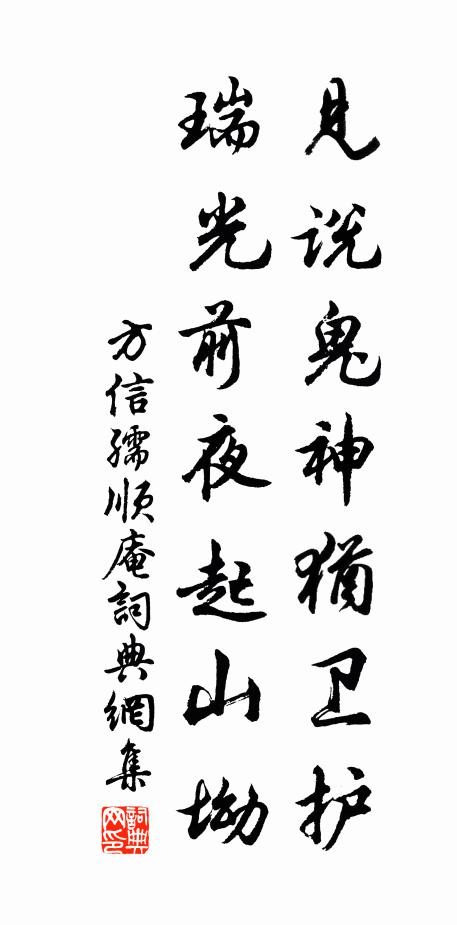 见说鬼神犹卫护
瑞光前夜起山坳
方信孺顺庵詞典網集
詞典网印